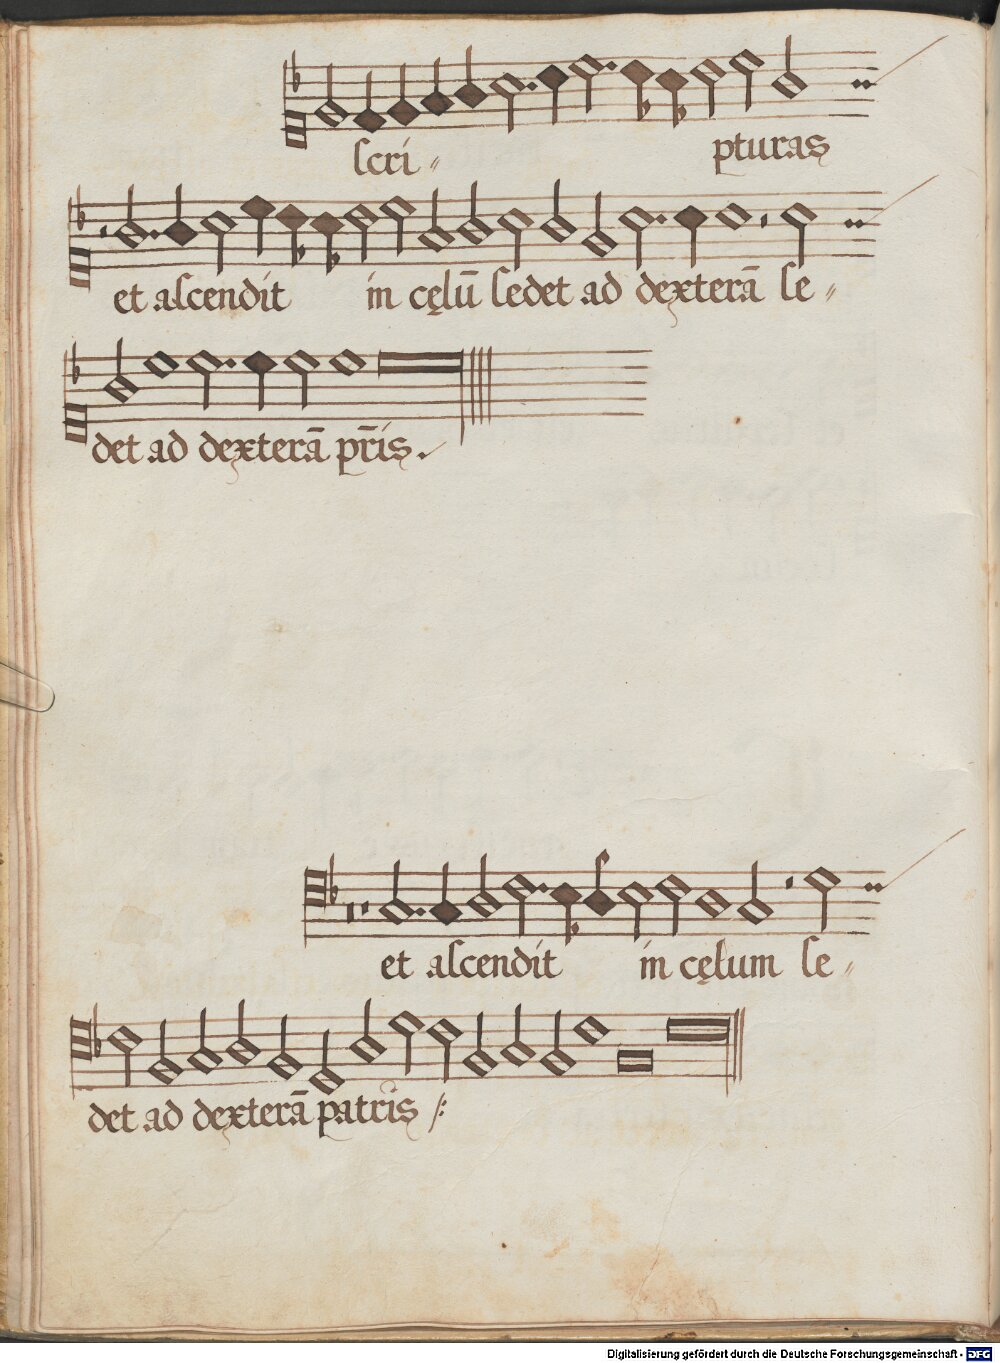 scri- pturas
et ascendit in cęlū sedet ad dexterā se-
det ad dexterā pr̄is.
et ascendit in cęlum se-
det ad dexterā patris
Digitalisierung gefördert durch die Deutsche Forschungsgemeinschaft - DFG